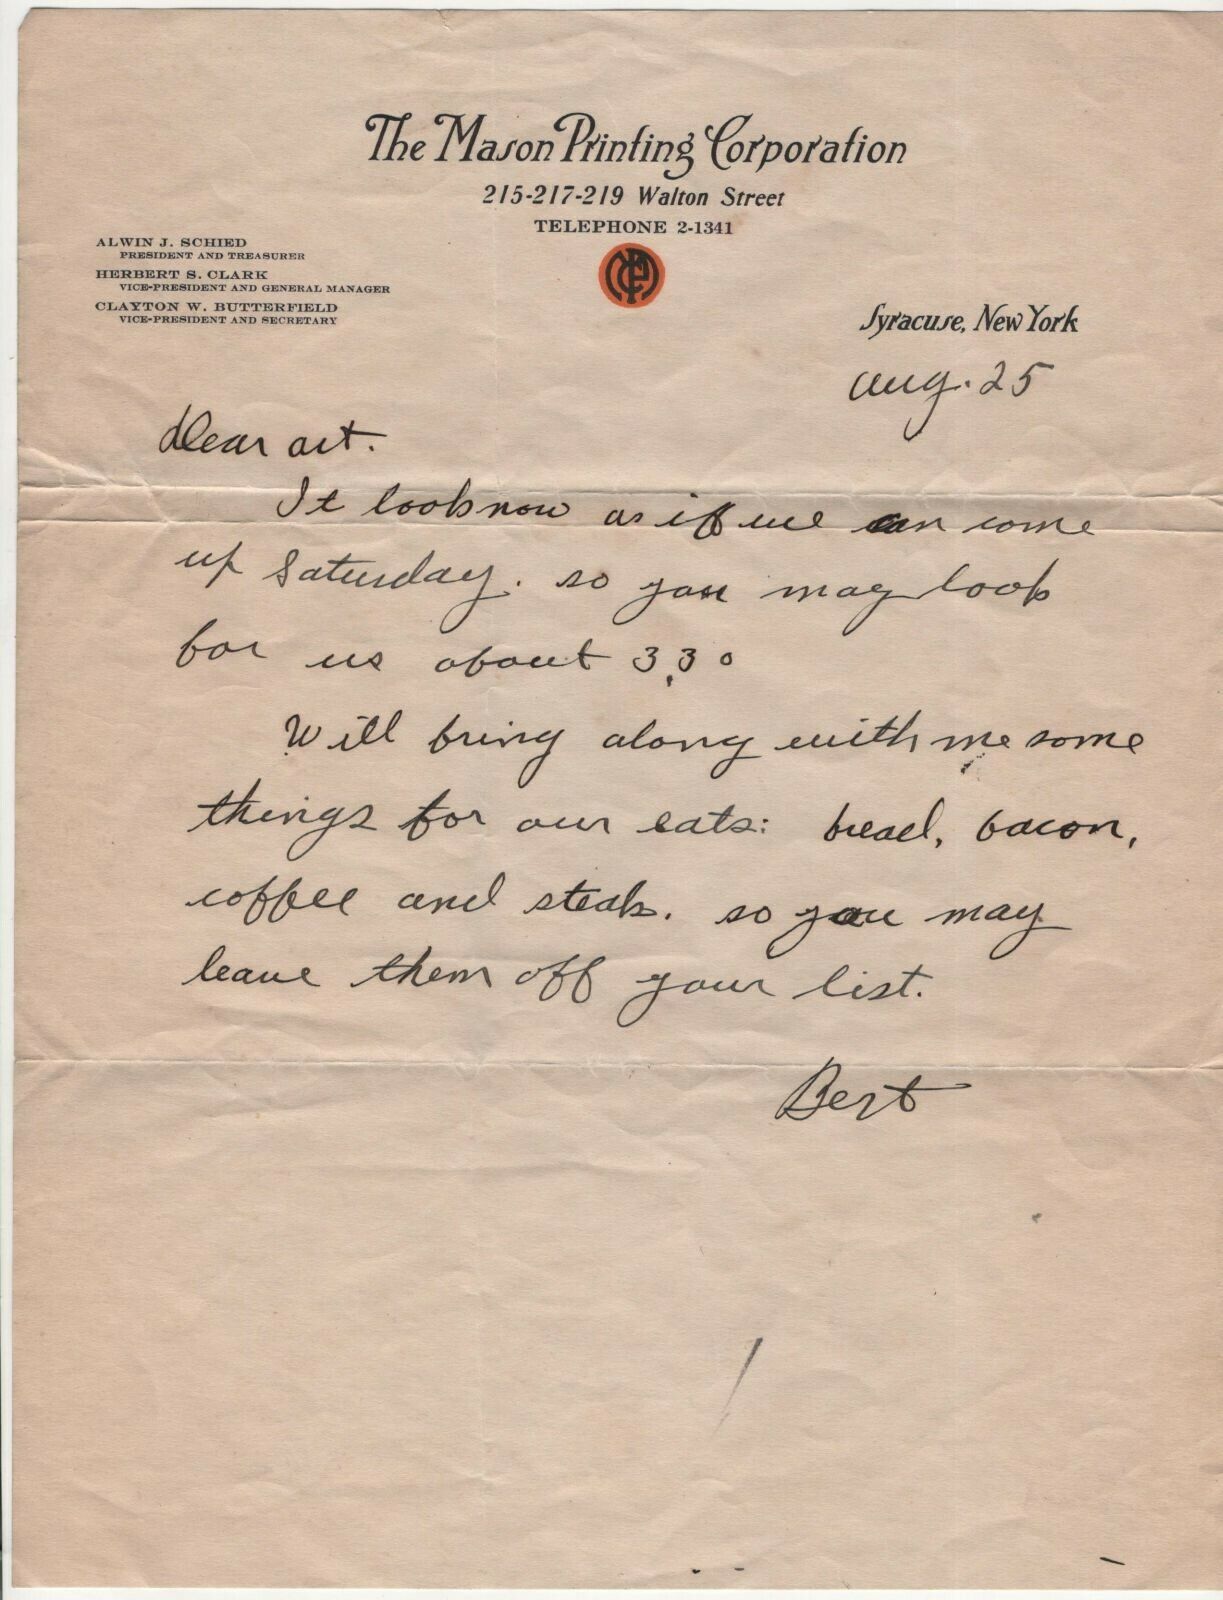 The Mason Printing Corporation
215-217-219 Walton Street
TELEPHONE 2-1341
ALWIN J. SCHIED
PRESIDENT AND TREASURER
HERBERT S. CLARK
VICE-PRESIDENT AND GENERAL MANAGER
CLAYTON W. BUTTERFIELD
VICE-PRESIDENT AND SECRETARY
MPC
Syracuse, New York
Aug. 25
Dear Art.
It looks now as if we can come
up Saturday. so you may look
for us about 3.30
Will bring along with me some
things for our eats: bread, bacon,
coffee and steak. so you may
leave them off your list.
Bert